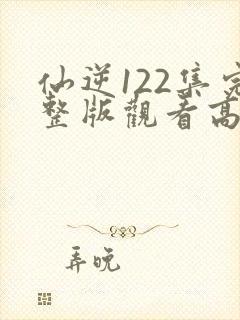 仙逆122集完
整版觀看高
弄晚